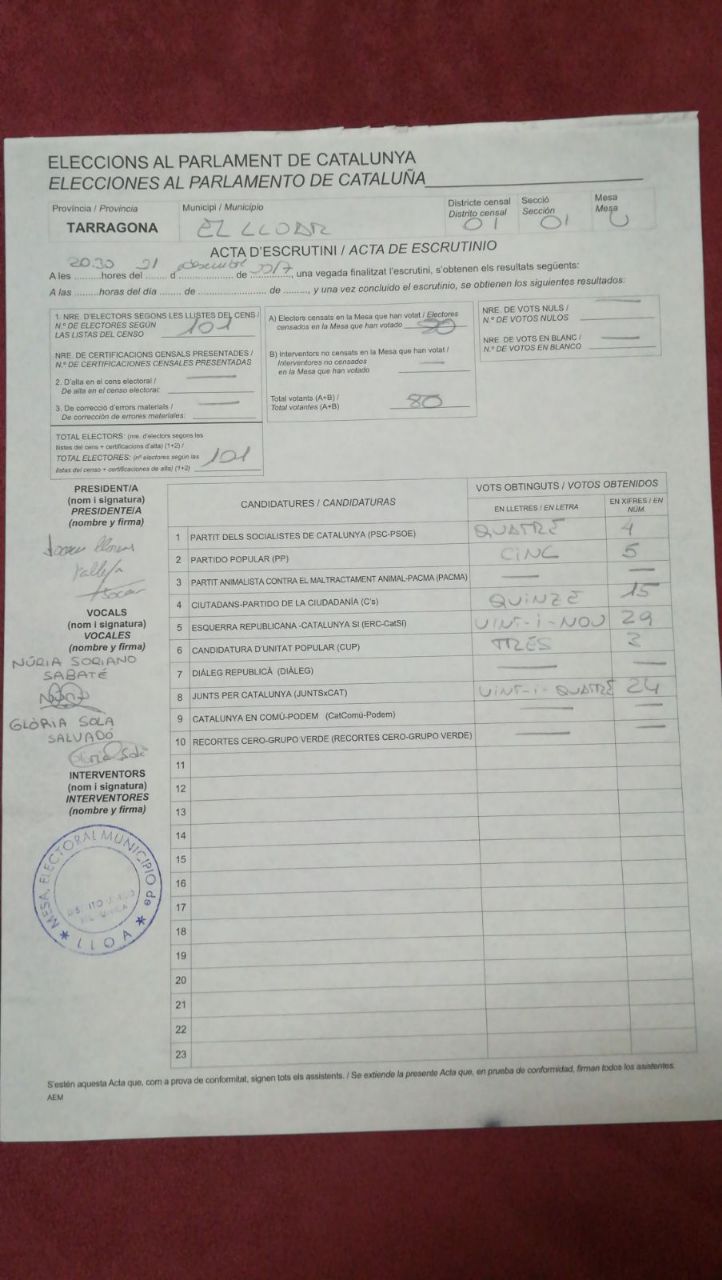 ELECCIONS AL PARLAMENT DE CATALUNYA
ELECCIONES AL PARLAMENTO DE CATALUÑA
Província / Provincia
TARRAGONA
Municipi / Municipio
EL LLOAR
Districte censal
Distrito censal
01
Secció
Sección
01
Mesa
Mesa
U
ACTA D'ESCRUTINI / ACTA DE ESCRUTINIO
A les 20:30 hores del 21 d desembre de 2017, una vegada finalitzat l'escrutini, s'obtenen els resultats següents:
A las ..........horas del día ....... de ........................ de ........., y una vez concluido el escrutinio, se obtienen los siguientes resultados:
1. NRE. D'ELECTORS SEGONS LES LLISTES DEL CENS /
N.º DE ELECTORES SEGÚN
LAS LISTAS DEL CENSO 101
NRE. DE CERTIFICACIONS CENSALS PRESENTADES /
N.º DE CERTIFICACIONES CENSALES PRESENTADAS
2. D'alta en el cens electoral /
De alta en el censo electoral: —
3. De correcció d'errors materials /
De corrección de errores materiales: —
TOTAL ELECTORS: (nre. d'electors segons les
llistes del cens + certificacions d'alta) (1+2) /
TOTAL ELECTORES: (nº electores según las
listas del censo + certificaciones de alta) (1+2) 101
A) Electors censats en la Mesa que han votat / Electores
censados en la Mesa que han votado 80
B) Interventors no censats en la Mesa que han votat /
Interventores no censados
en la Mesa que han votado —
Total votants (A+B) /
Total votantes (A+B) 80
NRE. DE VOTS NULS / —
N.º DE VOTOS NULOS
NRE. DE VOTS EN BLANC / —
N.º DE VOTOS EN BLANCO
PRESIDENT/A
(nom i signatura)
PRESIDENTE/A
(nombre y firma)
VOCALS
(nom i signatura)
VOCALES
(nombre y firma)
NÚRIA SORIANO
SABATÉ
GLÒRIA SOLA
SALVADÓ
INTERVENTORS
(nom i signatura)
INTERVENTORES
(nombre y firma)
MESA ELECTORAL MUNICIPIO de
LLOA
CANDIDATURES / CANDIDATURAS
VOTS OBTINGUTS / VOTOS OBTENIDOS
EN LLETRES / EN LETRA
EN XIFRES / EN NÚM.
1 PARTIT DELS SOCIALISTES DE CATALUNYA (PSC-PSOE) QUATRE 4
2 PARTIDO POPULAR (PP) CINC 5
3 PARTIT ANIMALISTA CONTRA EL MALTRACTAMENT ANIMAL-PACMA (PACMA) — —
4 CIUTADANS-PARTIDO DE LA CIUDADANÍA (C's) QUINZE 15
5 ESQUERRA REPUBLICANA -CATALUNYA SI (ERC-CatSí) VINT-I-NOU 29
6 CANDIDATURA D'UNITAT POPULAR (CUP) TRES 3
7 DIÀLEG REPUBLICÀ (DIÀLEG) — —
8 JUNTS PER CATALUNYA (JUNTSxCAT) VINT-I-QUATRE 24
9 CATALUNYA EN COMÚ-PODEM (CatComú-Podem) — —
10 RECORTES CERO-GRUPO VERDE (RECORTES CERO-GRUPO VERDE) — —
11
12
13
14
15
16
17
18
19
20
21
22
23
S'estén aquesta Acta que, com a prova de conformitat, signen tots els assistents. / Se extiende la presente Acta que, en prueba de conformidad, firman todos los asistentes.
AEM